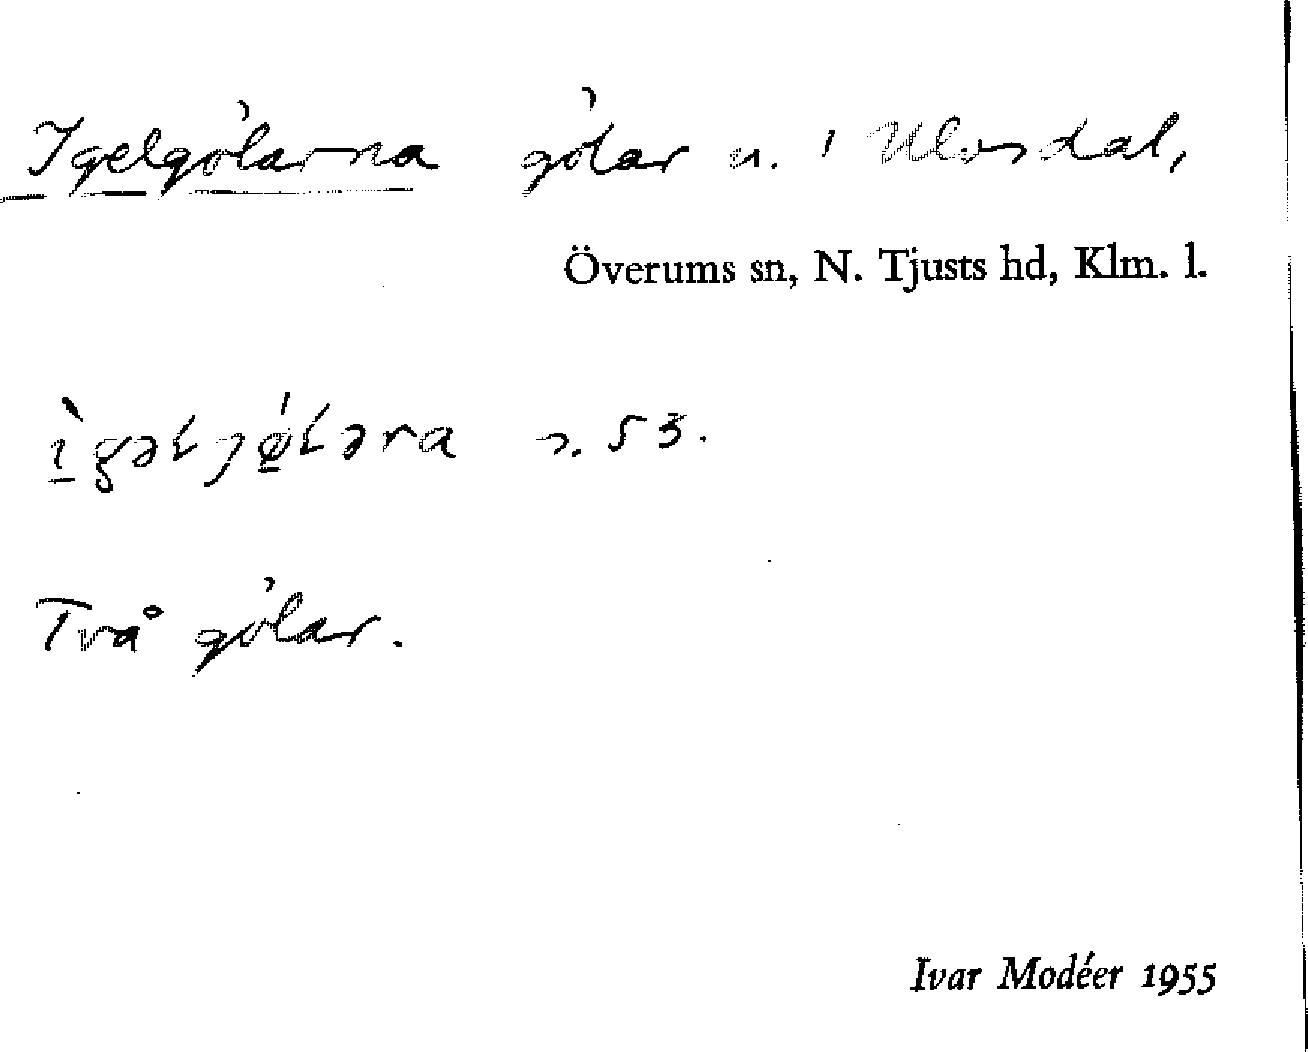 Igelgölarna gölar n. i Ulvsdal,
Överums sn, N. Tjusts hd, Klm. l.
ı̱̀gəłɟǿ̱łəra s. 53.
Två gölar.
Ivar Modéer 1955